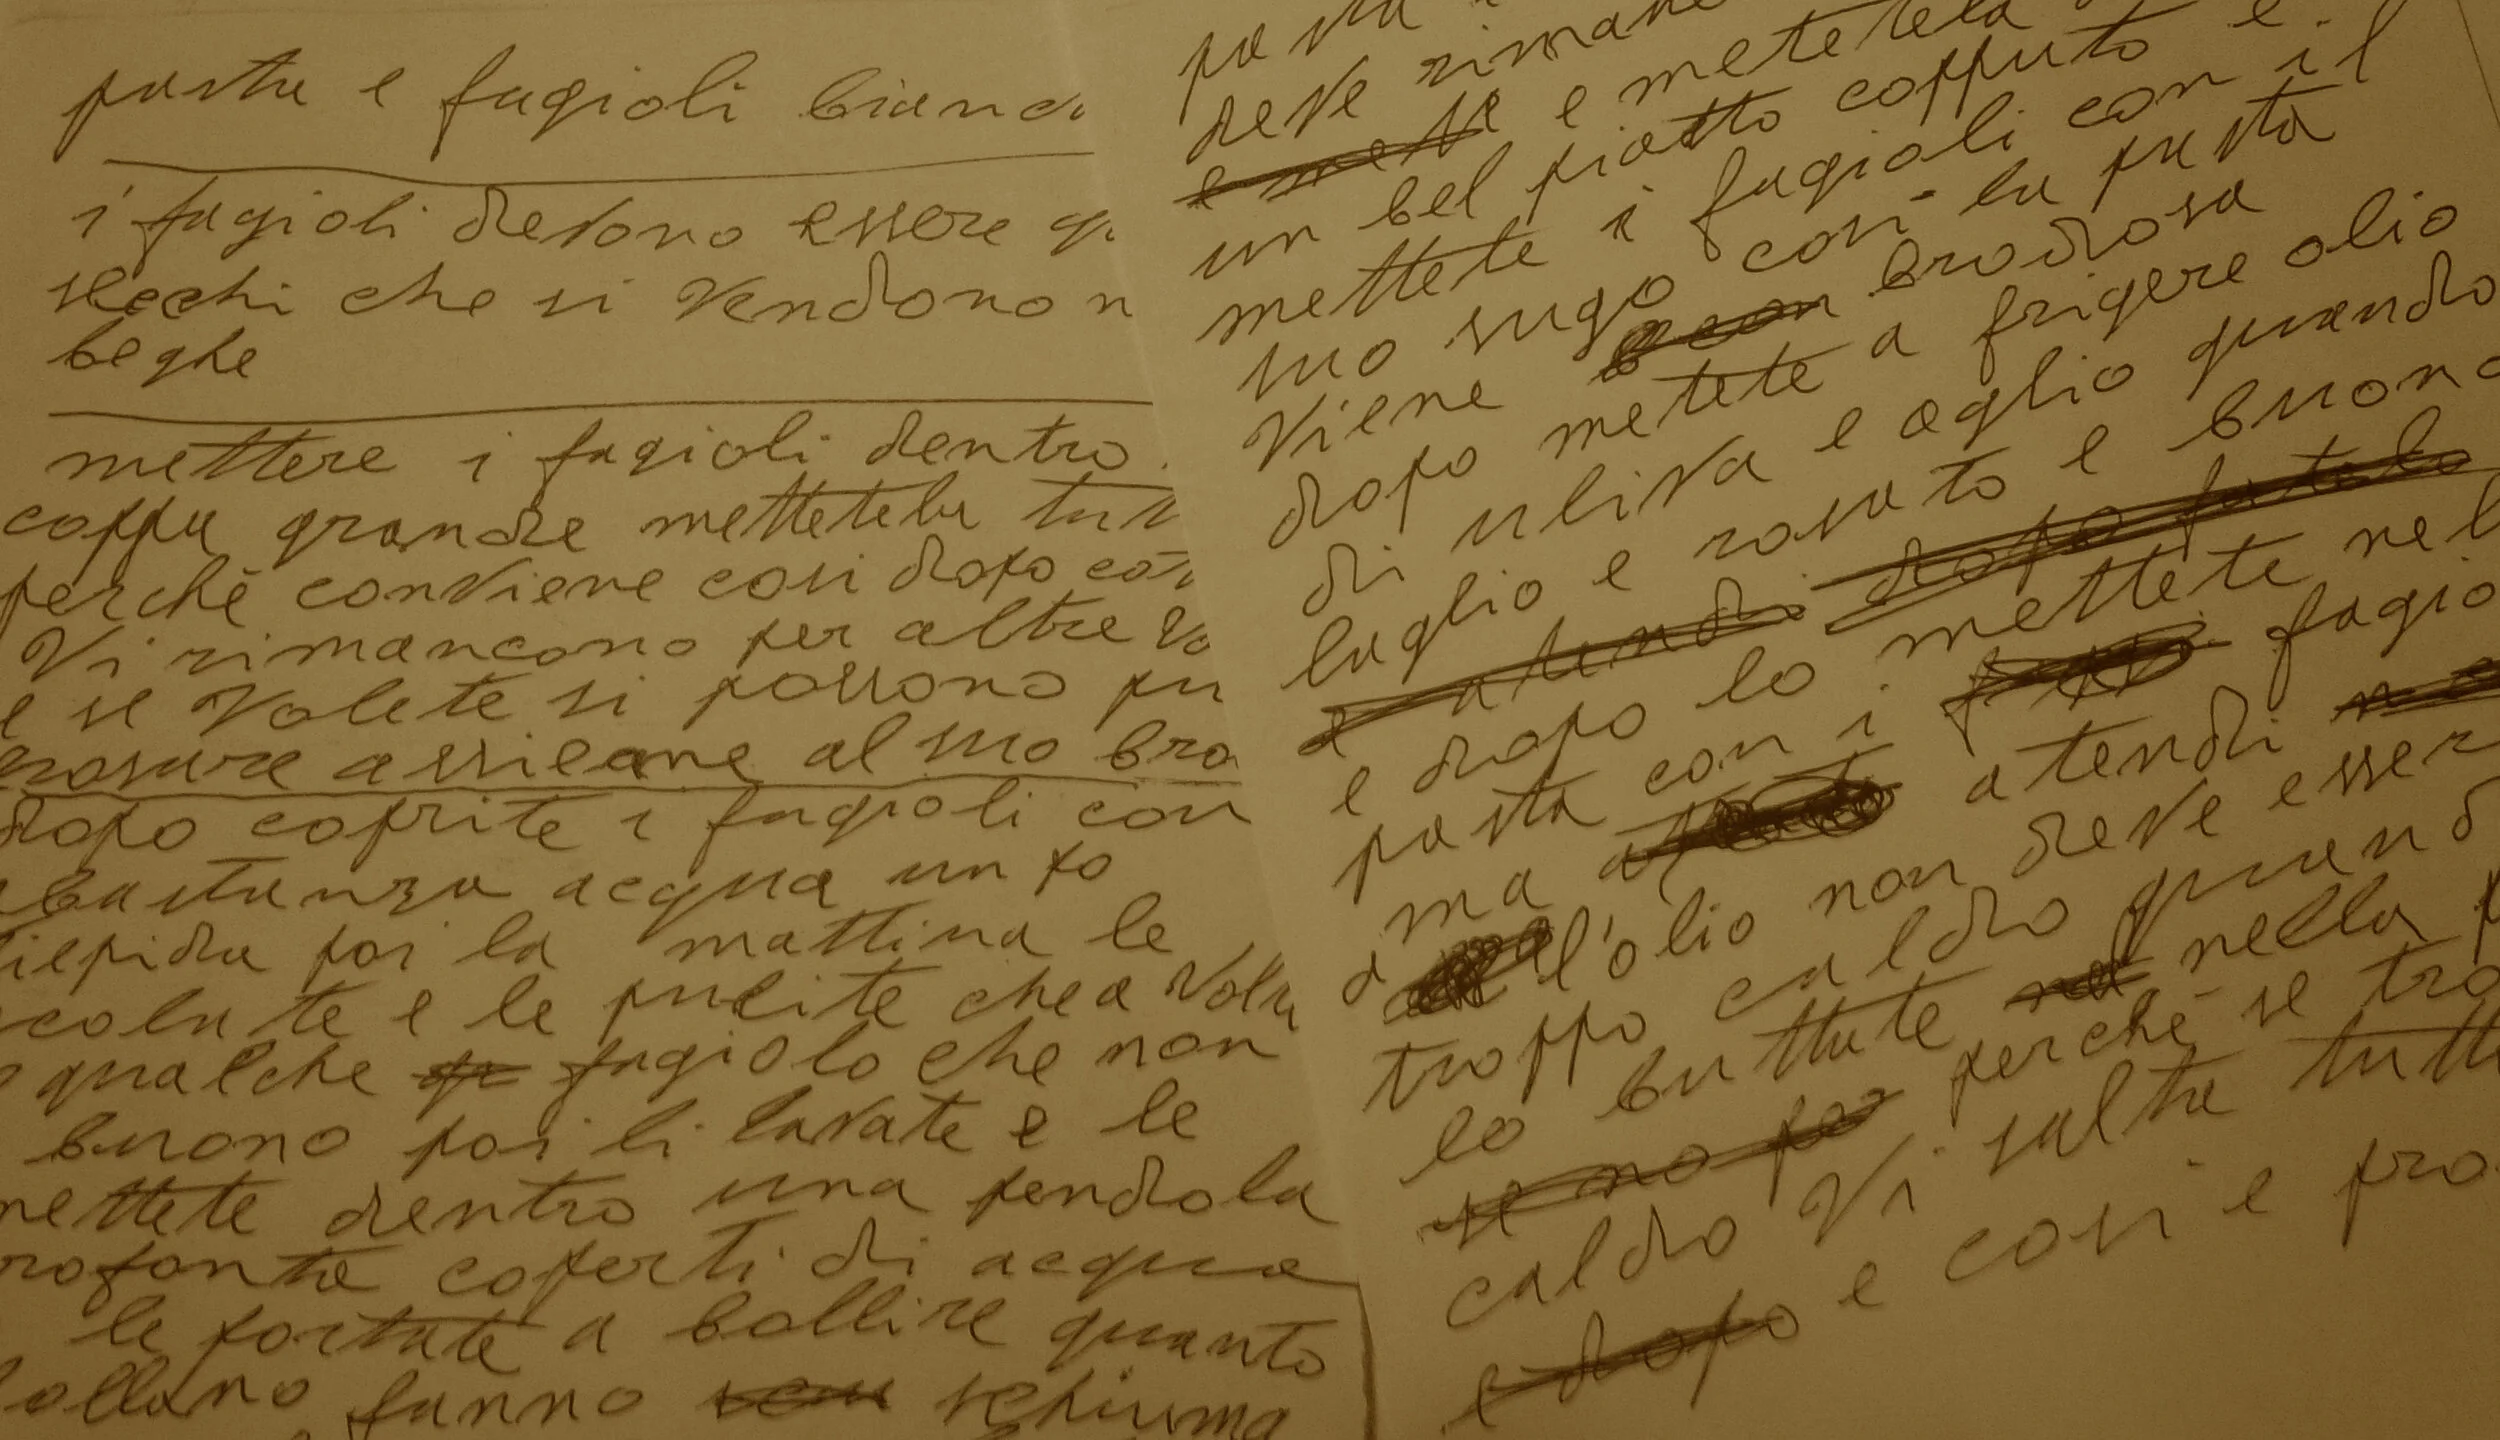 pasta e fagioli bianc
i fagioli devono essere
secchi che si vendono n
beghe
mettere i fagioli dentro
coppa grande mettetela tut
perchè conviene cosi dopo
Vi rimancono per altre
e se volete si possono
assieame al suo bro
dopo coprite i fagioli con
bastanza acqua un po
tiepida poi la mattina le
scolate e le pulite che a Volte
qualche fagiolo che non
buono poi li lavate e le
mettete dentro una pendola
rofonta coperti di acqua
le portate a bollire quanto
bollano fanno schiuma
pasta
deve rimane
e mette e metetela
un bel piatto copputo e
mettete i fagioli con il
suo sugo così la pasta
viene brodosa
dopo metete a frigere olio
di uliva e aglio quando
laglio e rosato e buono
e atendi dopo
e dopo lo mettete nel
pasta con i fagio
ma atendi
a l'olio non deve esser
troppo caldo quand
lo buttate nella p
se no po perchè se tro
caldo Vi salta tutt
e dopo e cosi e pro